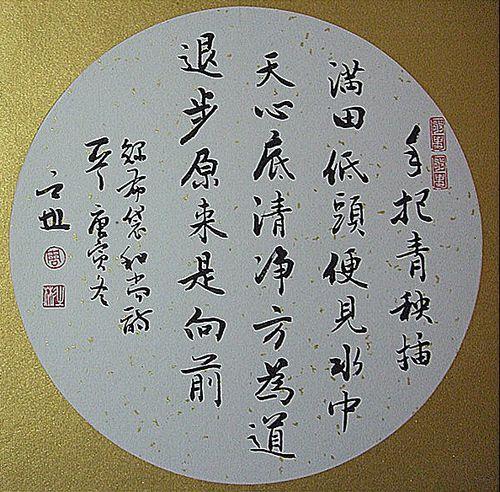 手把青秧插
满田低頭便見水中
天心底清净方為道
退步原来是向前
録布袋和尚詩
一首庚寅冬